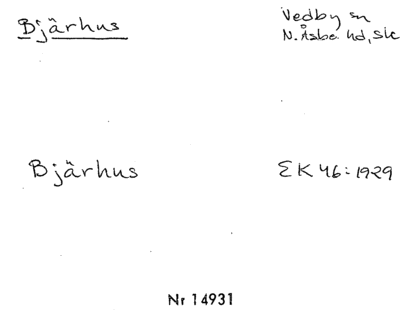 Bjärhus
Vedby sn
N. Åsbo hd, Sk
Bjärhus
EK 46:1929
Nr 14931